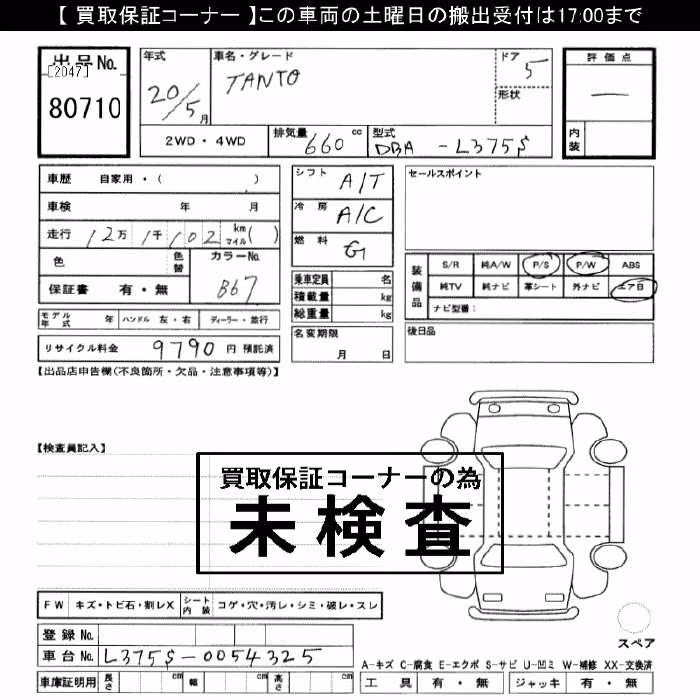 【 買取保証コーナー 】この車両の土曜日の搬出受付は17:00まで
出品No.
[2047]
80710
年式
20/5月
車名・グレード
TANTO
ドア
5
形状
評価点
—
内装
2WD・4WD
排気量
660 cc
型式
DBA - L375S
車歴 自家用・( )
車検 年 月
走行 12万 1千 102 km マイル( )
色
色替
カラーNo.
B67
保証書 有・無
シフト A/T
冷房 A/C
燃料 G
乗車定員 名
積載量 kg
総重量 kg
セールスポイント
装備品
S/R 純A/W P/S P/W ABS
純TV 純ナビ 革シート 外ナビ エアB
ナビ型番:
モデル年式 年 ハンドル 左・右 ディーラー・並行
名変期限
月 日
後日品
リサイクル料金 9790 円 預託済
【出品店申告欄(不良箇所・欠品・注意事項等)】
【検査員記入】
買取保証コーナーの為
未検査
FW キズ・トビ石・割レX シート内装 コゲ・穴・汚レ・シミ・破レ・スレ
スペア
登録No.
車台No. L375S-0054325
A-キズ C-腐食 E-エクボ S-サビ U-凹ミ W-補修 XX-交換済
車庫証明用 長さ cm 幅 cm 高さ cm
工具 有・無 ジャッキ 有・無